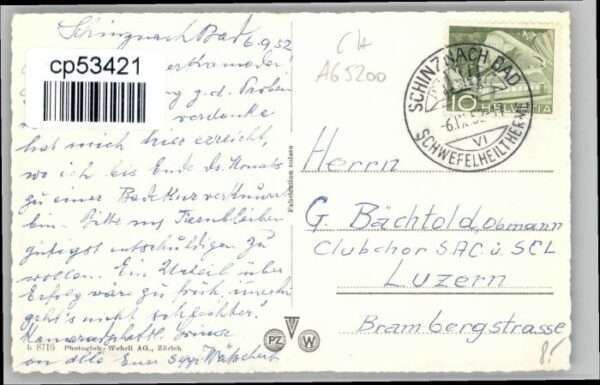 Schinznach Bad
6.9.52
cp53421
g. d. Proben
verdanke
hat mich hier erreicht,
wo ich bis Ende ds. Monats
zu einer Badekur verknurrt
bin. Bitte my Fernbleiben
gütigst entschuldigen zu
wollen. Ein Urteil über
Erfolg wäre zu früh,
geht's nicht schlechter!
Kameradschaftl. Grüsse
an alle Euer Sepp
b 8716 Photoglob-Wehrli AG., Zürich
Fabrication suisse
PZ W
CH
A65200
10 HELVETIA
SCHINZNACH BAD
-6.IX.52-
VI
SCHWEFELHEILTHERME
Herrn
G. Bächtold, Obmann
Clubchor S.A.C. u. SCL
Luzern
Brambergstrasse
8.-